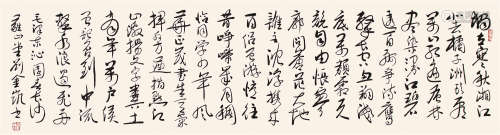 独立寒秋湘江
北去橘子洲头看
万山红遍层林
尽染漫江碧
透百舸争流鹰
击长空鱼翔浅
底万类霜天
竞自由怅寥
廓问苍茫大地
谁主沉浮携来
百侣曾游忆往
昔峥嵘岁月稠
恰同学少年风
华正茂书生意气
挥斥方遒指点江
山激扬文字粪土
当年万户侯
曾记否到中流
击水浪遏飞舟
毛泽东沁园春长沙
刘金凯书